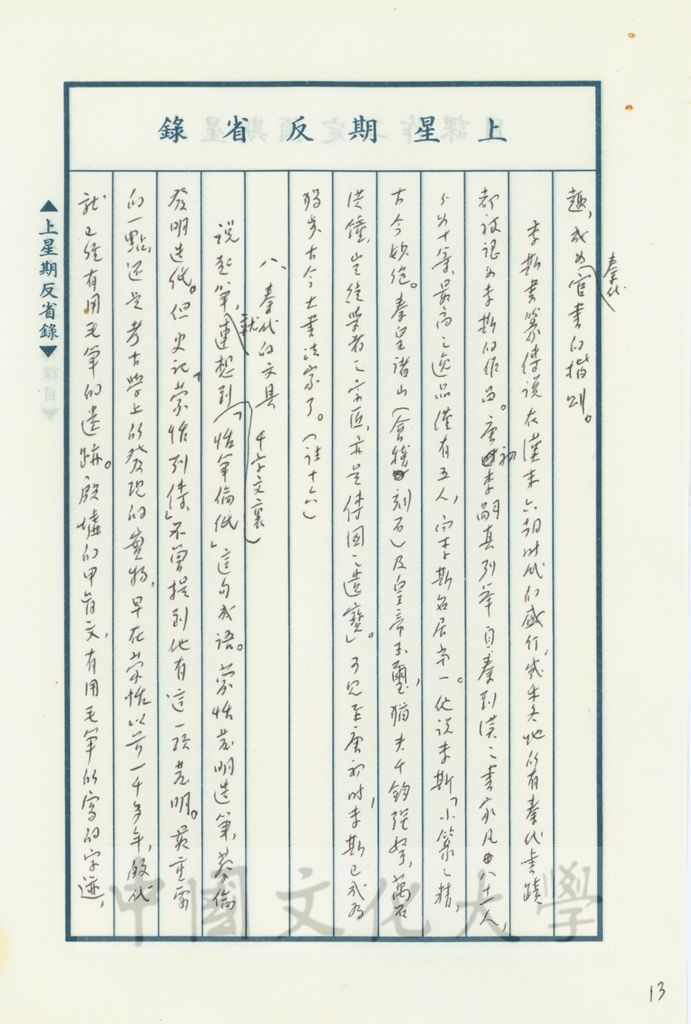 上星期反省錄
趣，成為秦代官書的楷則。
李斯書篆傳說在漢末六朝時代仍盛行，幾乎各地所有秦代書蹟
都被認為李斯的作品。唐初李嗣真列舉自秦到漢之書家凡八十一人，
分為十等，最高之逸品僅有五人，而李斯名居第一。他說李斯「小篆之精，
古今妙絕。秦望諸山（會稽刻石）及皇帝玉璽，猶夫千鈞強弩，萬石
洪鐘，豈徒學者之宗匠，亦是傳國之遺寶」。可見至唐初時，李斯已成為
獨步古今大書法家了。（註十六）
八、秦代的文具
說起筆，就連想到（千字文裏）「恬筆倫紙」這句成語。蒙恬發明造筆，蔡倫
發明造紙。但史記「蒙恬列傳」不曾提到他有這一項發明。最重要
的一點，還是考古學上的發現的實物，早在蒙恬以前一千多年，殷代
就已經有用毛筆的遺跡。殷墟的甲骨文，有用毛筆所寫的字迹，
▲上星期反省錄▼
中國文化大學
13